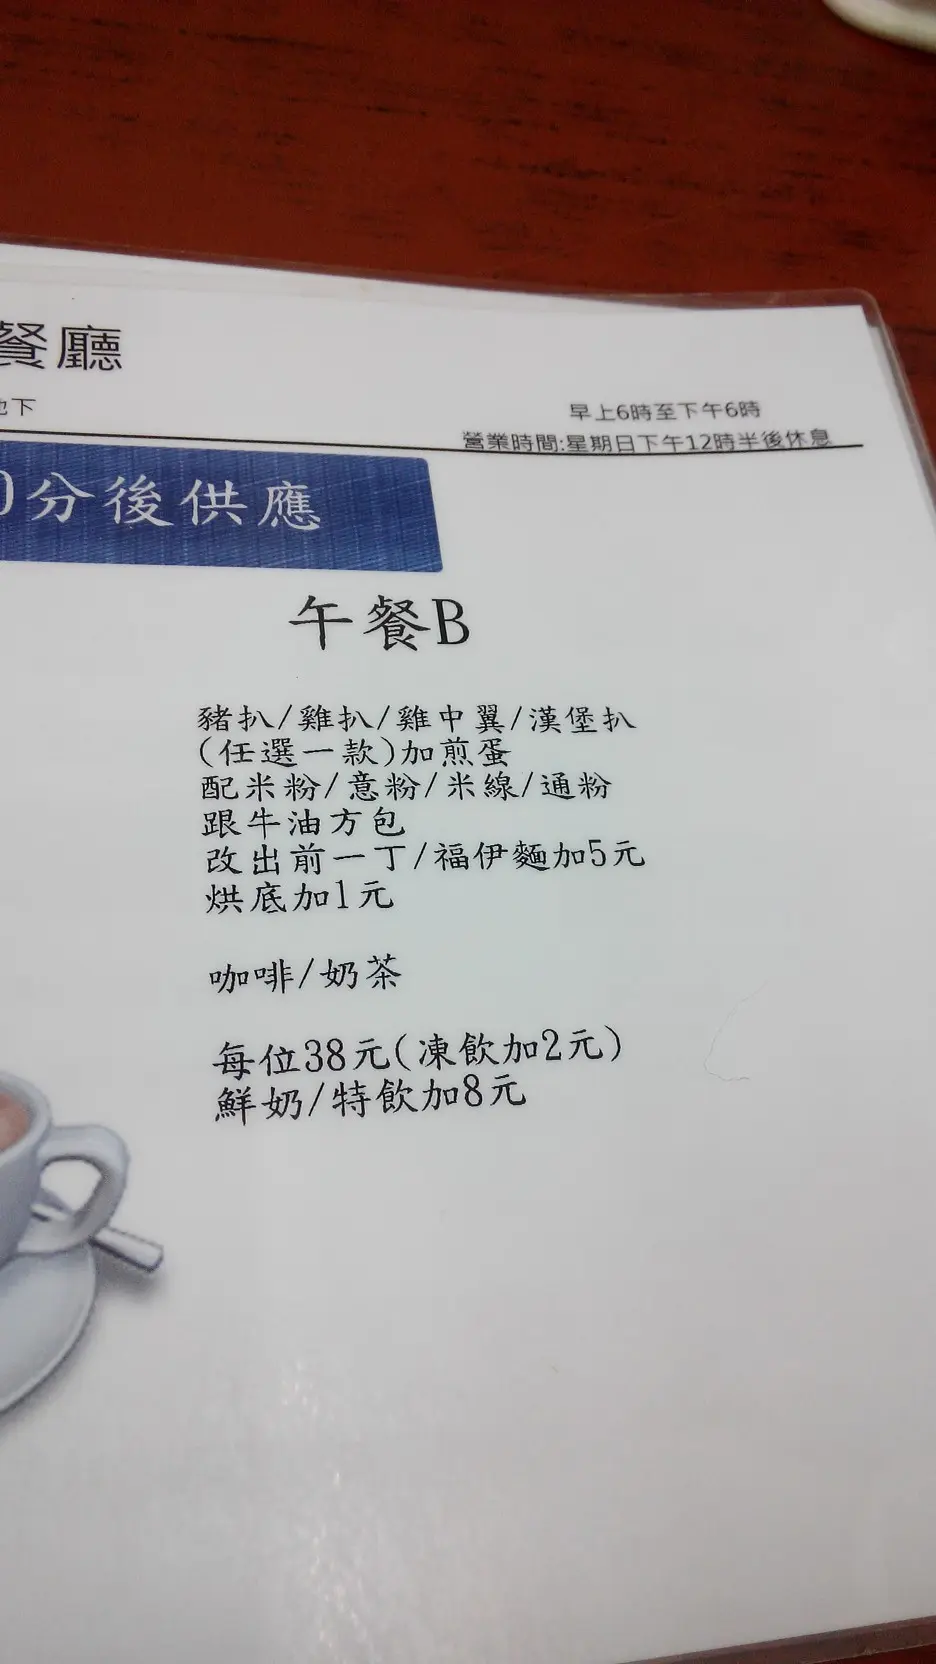 餐廳
地下
早上6時至下午6時
營業時間:星期日下午12時半後休息
0分後供應
午餐B
豬扒/雞扒/雞中翼/漢堡扒
(任選一款)加煎蛋
配米粉/意粉/米線/通粉
跟牛油方包
改出前一丁/福伊麵加5元
烘底加1元
咖啡/奶茶
每位38元(凍飲加2元)
鮮奶/特飲加8元